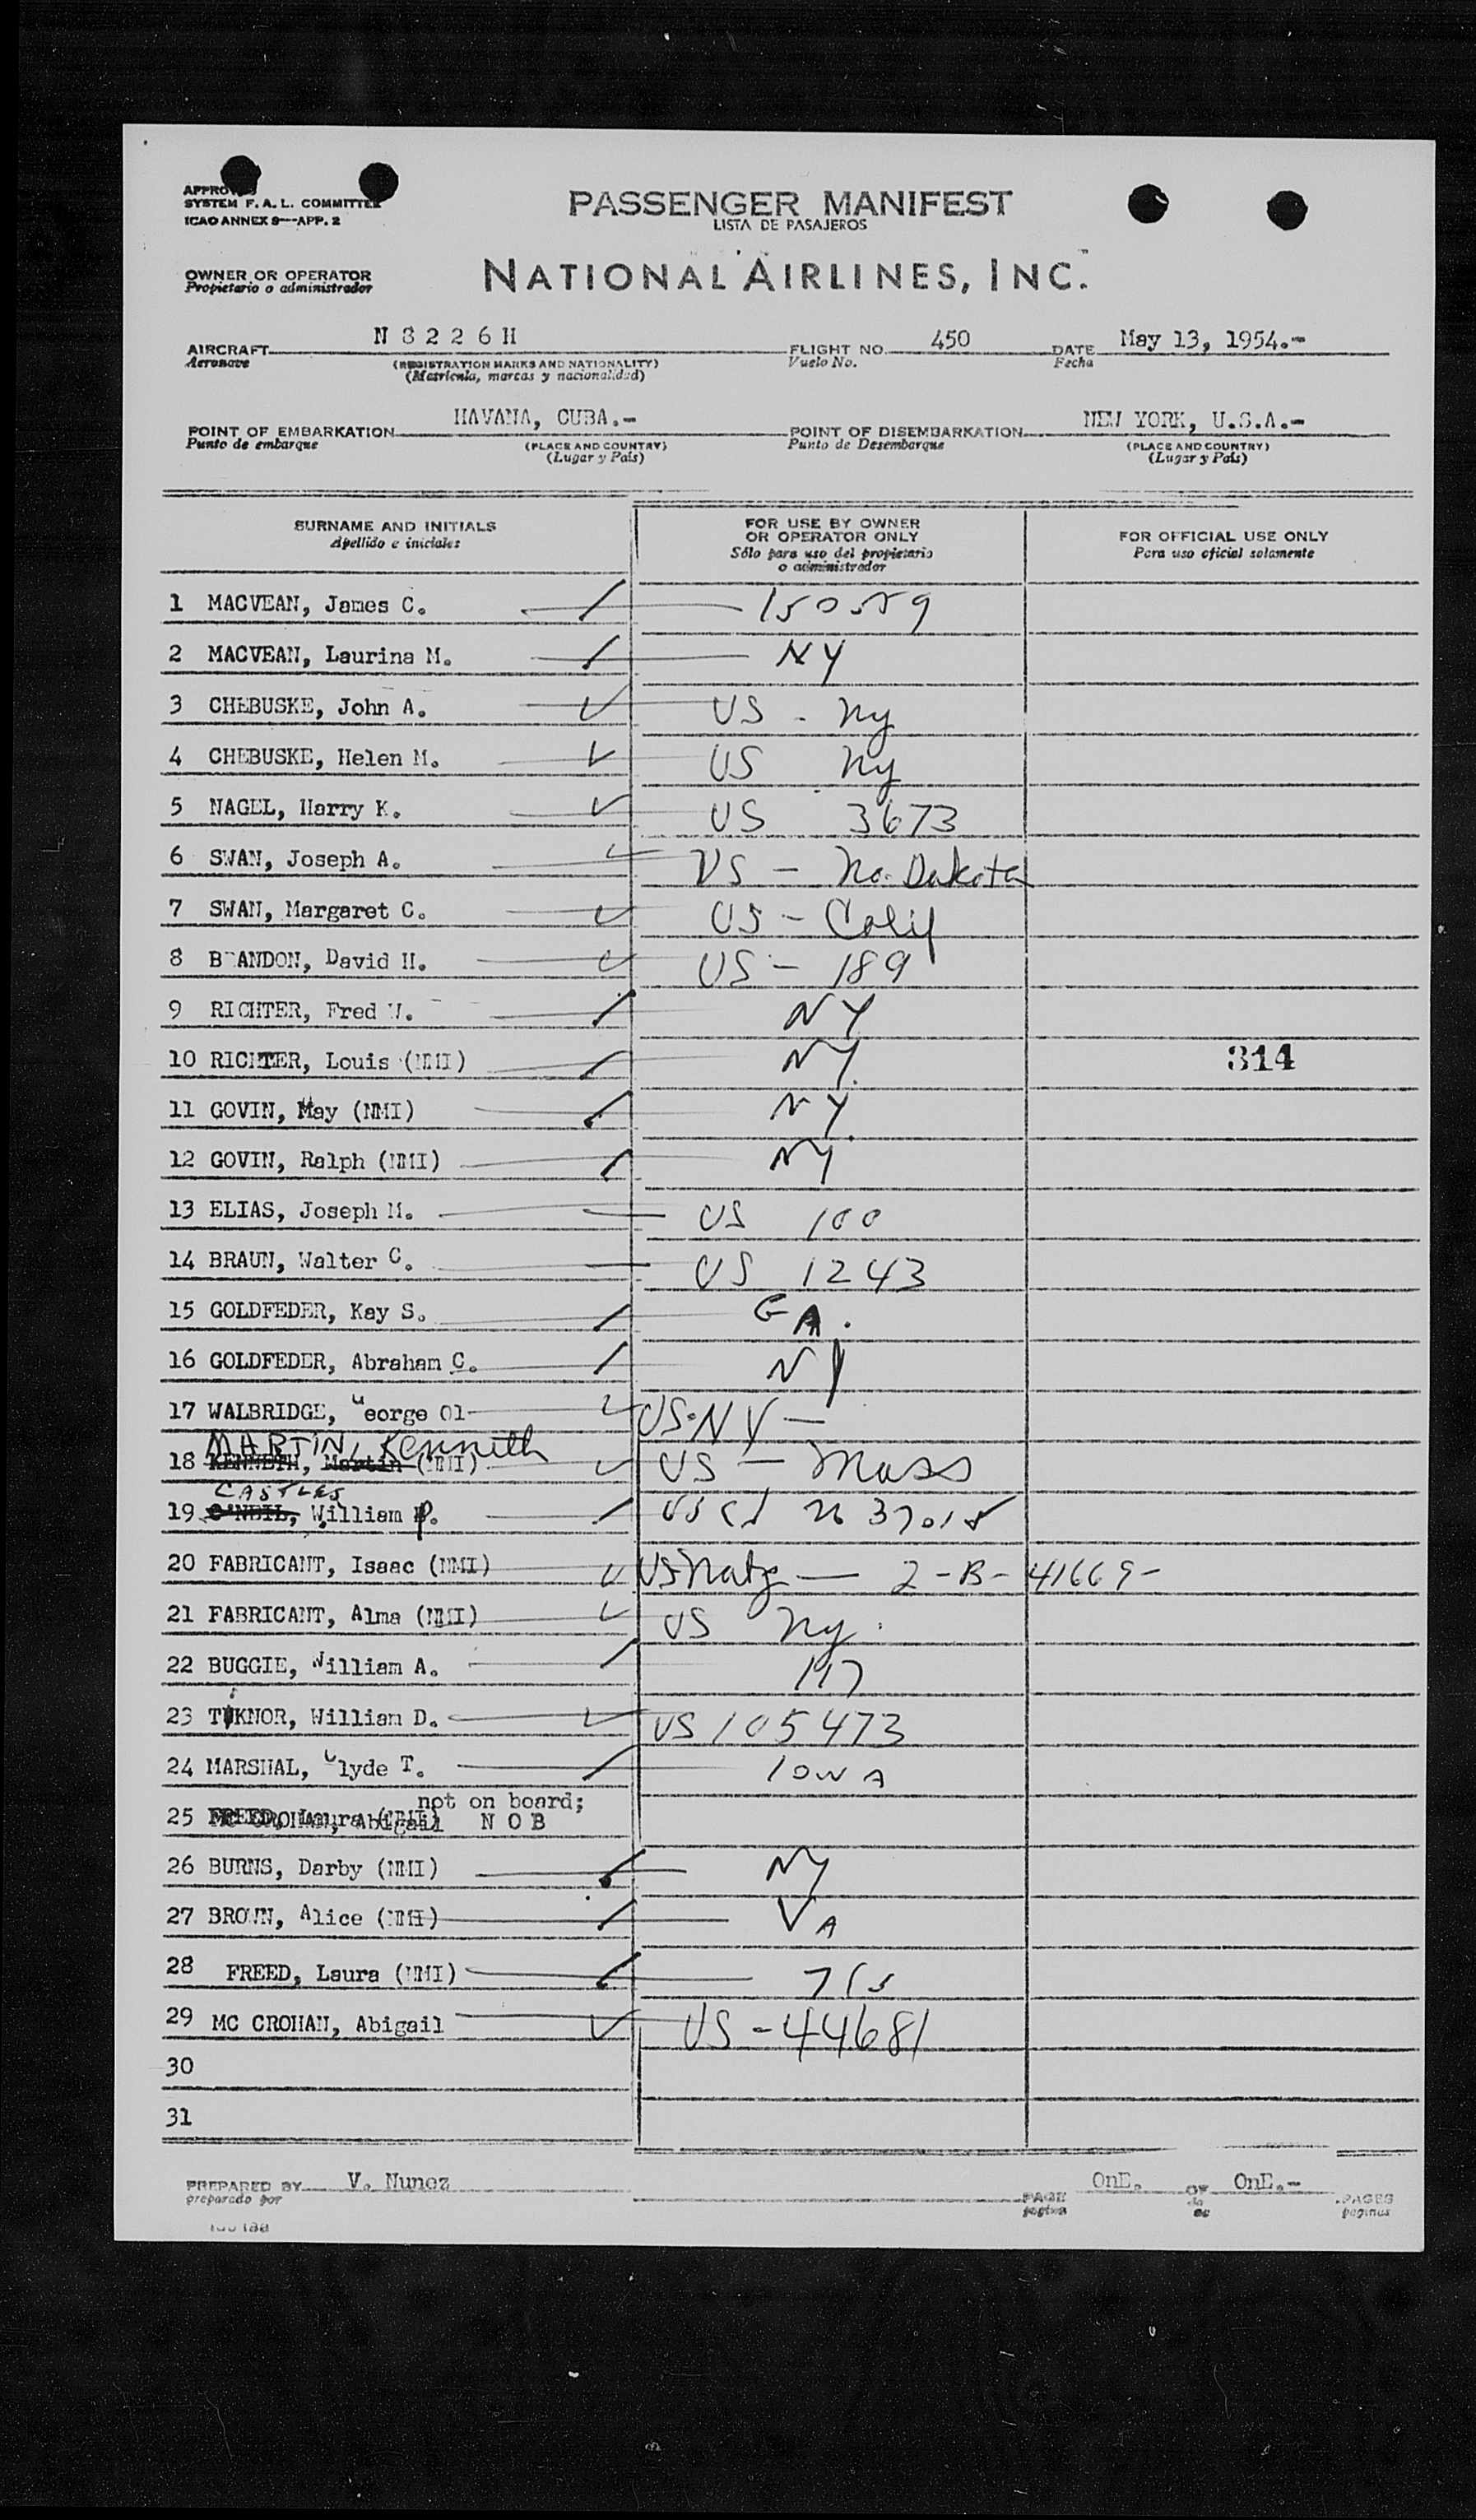 APPROVED
SYSTEM F. A. L. COMMITTEE
ICAO ANNEX 9—APP. 2
PASSENGER MANIFEST
LISTA DE PASAJEROS
OWNER OR OPERATOR
Propietario o administrador
NATIONAL AIRLINES, INC.
AIRCRAFT N 8 2 2 6 H FLIGHT NO. 450 DATE May 13, 1954.-
Aeronave (REGISTRATION MARKS AND NATIONALITY) Vuelo No. Fecha
(Matrícula, marcas y nacionalidad)
POINT OF EMBARKATION HAVANA, CUBA.- POINT OF DISEMBARKATION NEW YORK, U.S.A.-
Punto de embarque (PLACE AND COUNTRY) Punto de Desembarque (PLACE AND COUNTRY)
(Lugar y País) (Lugar y País)
SURNAME AND INITIALS
Apellido e iniciales
FOR USE BY OWNER
OR OPERATOR ONLY
Sólo para uso del propietario
o administrador
FOR OFFICIAL USE ONLY
Para uso oficial solamente
1 MACVEAN, James C. 150559
2 MACVEAN, Laurina M. NY
3 CHEBUSKE, John A. US - Ny
4 CHEBUSKE, Helen M. US Ny
5 NAGEL, Harry K. US 3673
6 SWAN, Joseph A. US - No. Dakota
7 SWAN, Margaret C. US - Calif
8 B ANDON, David H. US - 189
9 RICHTER, Fred W. NY
10 RICHTER, Louis (NMI) NY. 314
11 GOVIN, May (NMI) NY.
12 GOVIN, Ralph (NMI) NY
13 ELIAS, Joseph M. US 100
14 BRAUN, Walter C. US 1243
15 GOLDFEDER, Kay S. GA.
16 GOLDFEDER, Abraham C. NY
17 WALBRIDGE, George Ol US-NY —
MARTIN, Kenneth
18 KENNETH, Martin (NMI) US — Mass
CASTLES
19 O'NEIL, William P.
20 FABRICANT, Isaac (NMI) US Natz — 2-B-41669-
21 FABRICANT, Alma (NMI) US Ny.
22 BUGGIE, William A.
23 TiKNOR, William D. US 105473
24 MARSHAL, Clyde T. IOWA
not on board;
25 FREED, Laura (NMI) N O B
MC CROHAN, Abigail
26 BURNS, Darby (NMI) NY
27 BROWN, Alice (NMI) VA
28 FREED, Laura (NMI)
29 MC CROHAN, Abigail US - 44681
30
31
PREPARED BY V. Nunez PAGE OnE. OF OnE.- PAGES
preparado por página de páginas